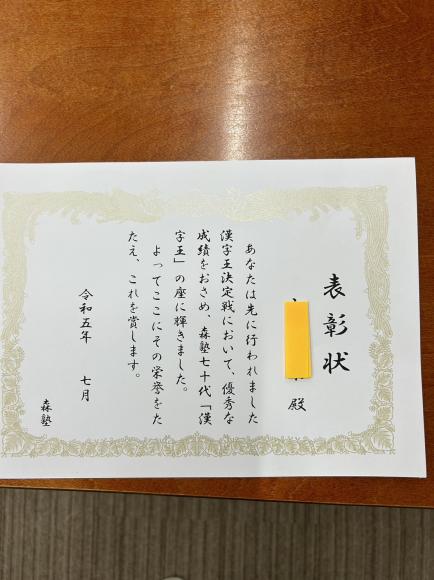 表彰状
殿
あなたは先に行われました
漢字王決定戦において、優秀な
成績をおさめ、森塾七十代「漢
字王」の座に輝きました。
よってここにその栄誉をた
たえ、これを賞します。
令和五年 七月
森塾